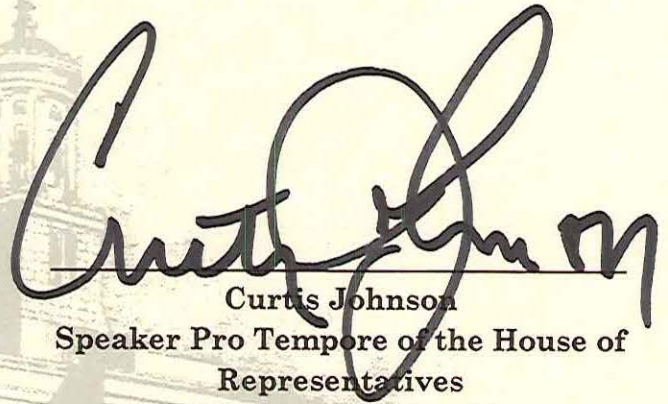 Curtis Johnson
Curtis Johnson
Speaker Pro Tempore of the House of
Representatives